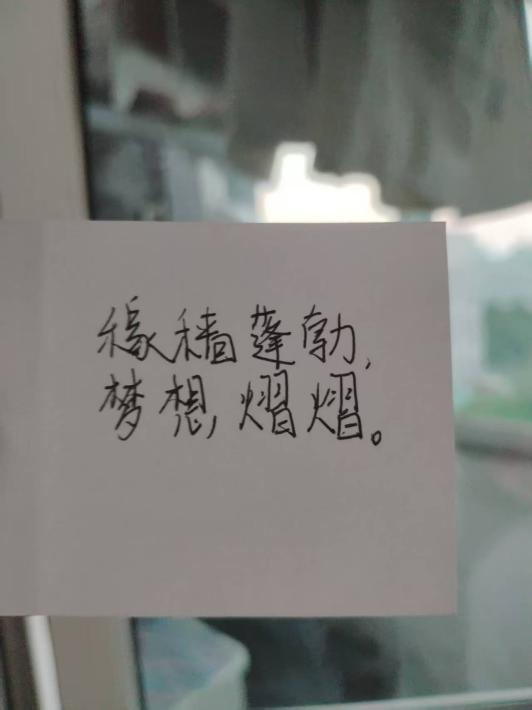 稼穑蓬勃,
梦想熠熠。